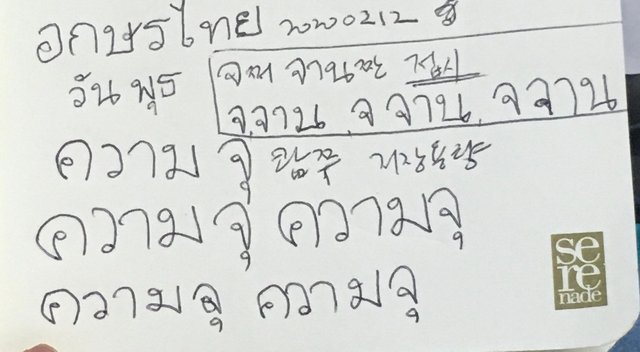 อักษรไทย 20200212 수
วันพุธ
จ쩌 จาน짠 접시
จ.จาน, จ จาน, จ จาน
ความจุ 캄쭈 저장용량
ความจุ ความจุ
ความจุ ความจุ
se
re
nade